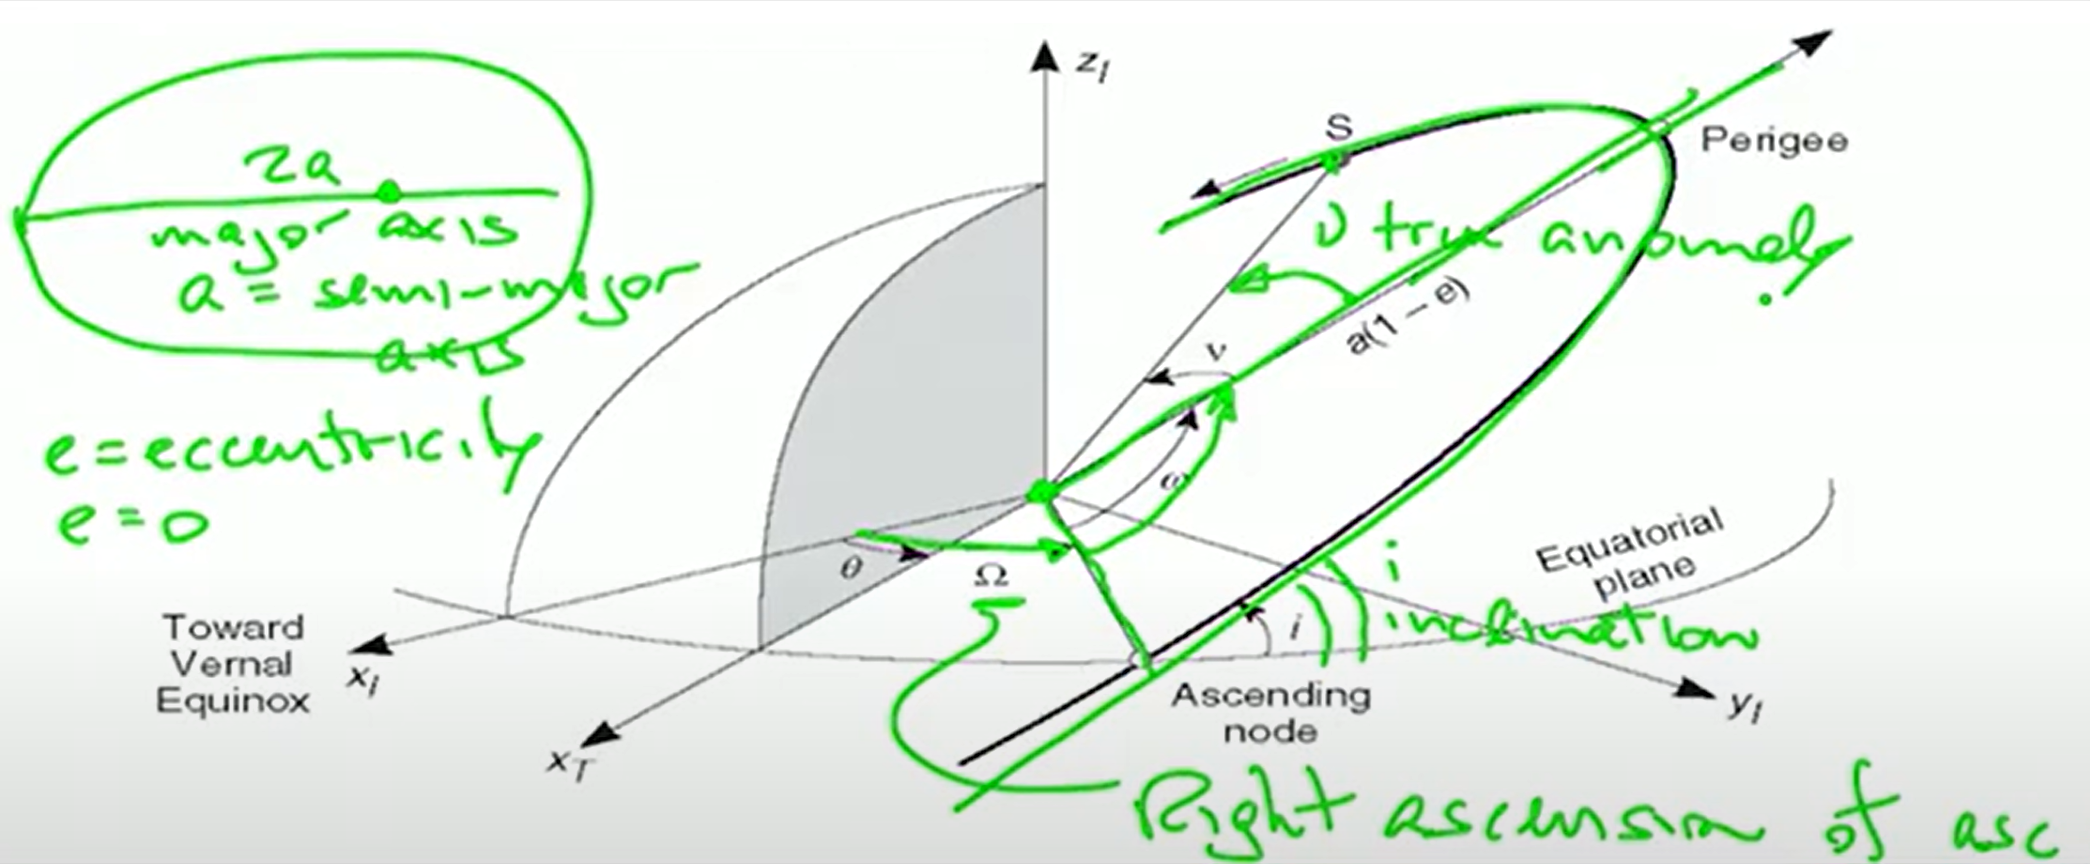 2a
major axis
a = semi-major
axis
e = eccentricity
e = 0
z_I
S
Perigee
ν true anomaly
a(1 – e)
ν
ω
θ
Ω
i
inclination
i
Equatorial
plane
Toward
Vernal
Equinox
x_I
x_T
Ascending
node
y_I
Right ascension of asc